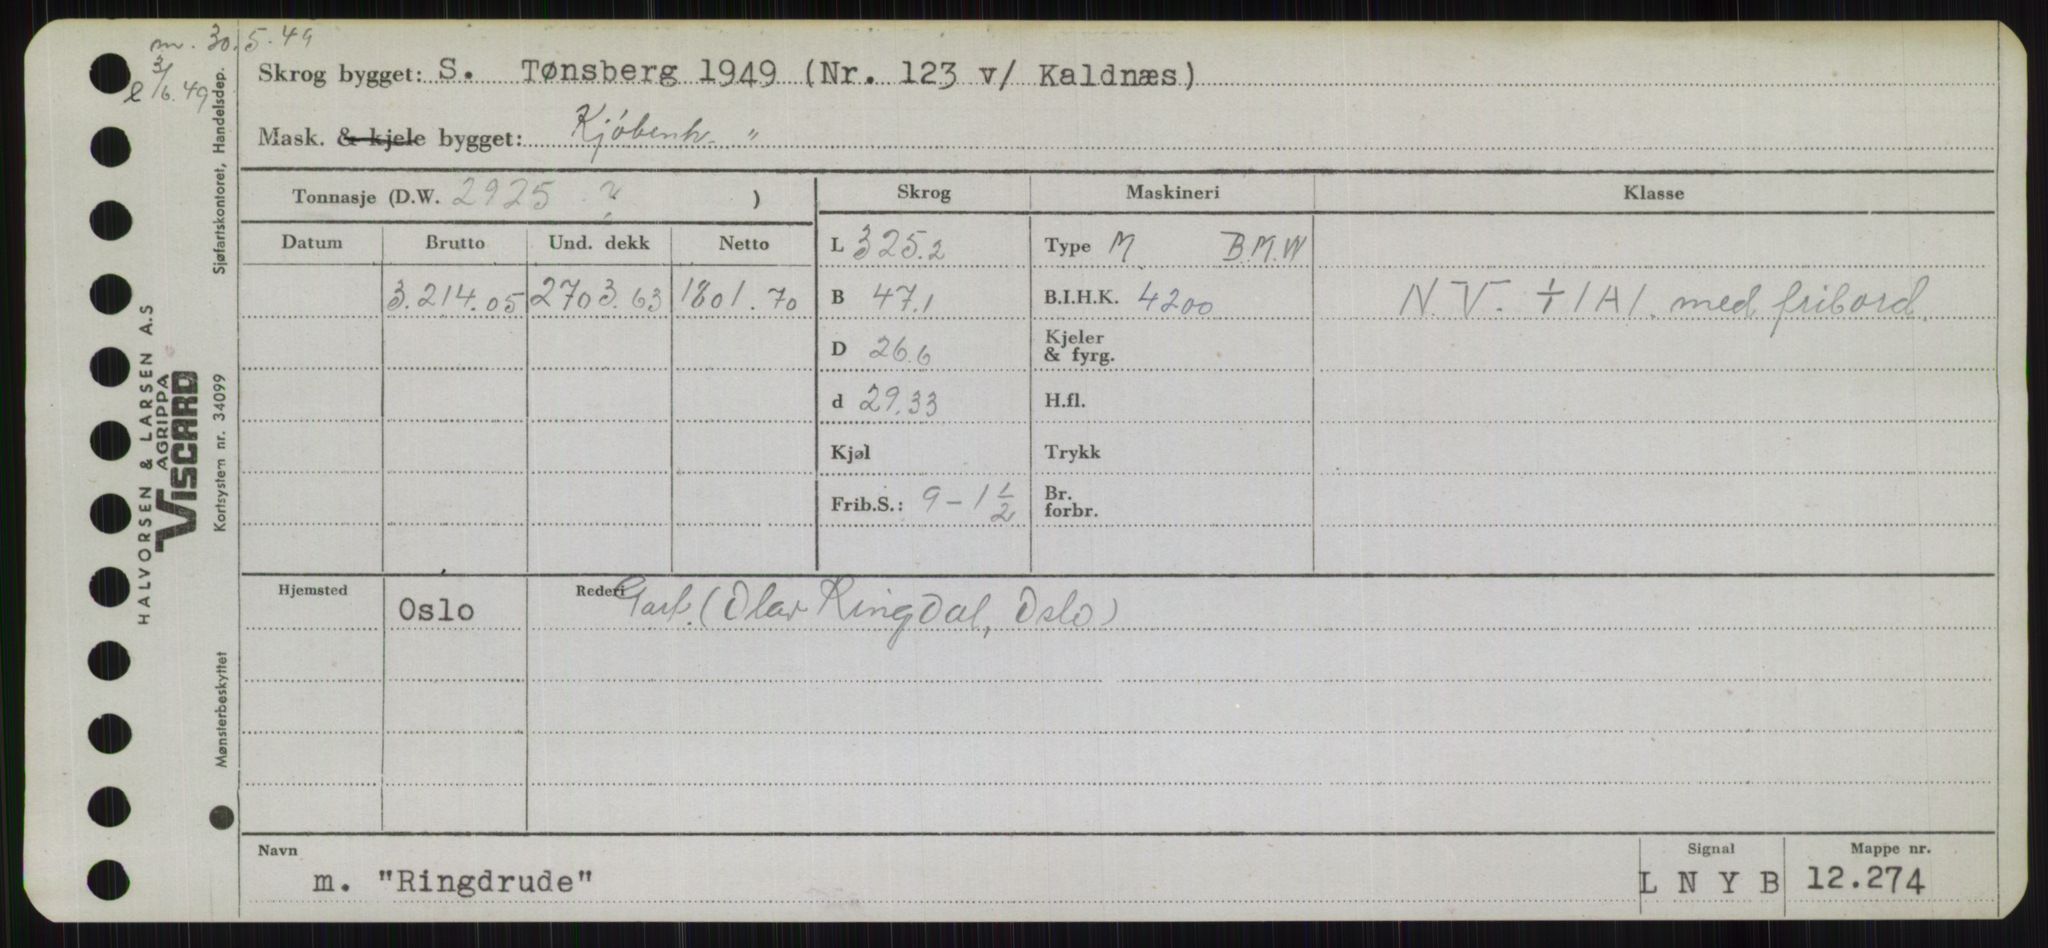 m. 30.5.49
l 3/6.49
Skrog bygget: S. Tønsberg 1949 (Nr. 123 v/ Kaldnæs)
Mask. & kjele bygget: Kjøbenh. "
Tonnasje (D.W. 2925 ? )
Skrog Maskineri Klasse
Datum Brutto Und. dekk Netto
L 325.2 Type M B.M.W
3.214.05 2703.63 1801.70
B 47.1 B.I.H.K. 4200 N.V. ☩ 1A1. med fribord.
D 26.6 Kjeler & fyrg.
d 29.33 H.fl.
Kjøl Trykk
Frib.S.: 9-1 1/2 Br. forbr.
Hjemsted Rederi
Oslo (Olav Ringdal, Oslo)
Navn Signal Mappe nr.
m. "Ringdrude" L N Y B 12.274
HALVORSEN & LARSEN A.S
AGRIPPA
VISCARD
Sjøfartskontoret, Handelsdep.
Kortsystem nr. 34099
Mønsterbeskyttet